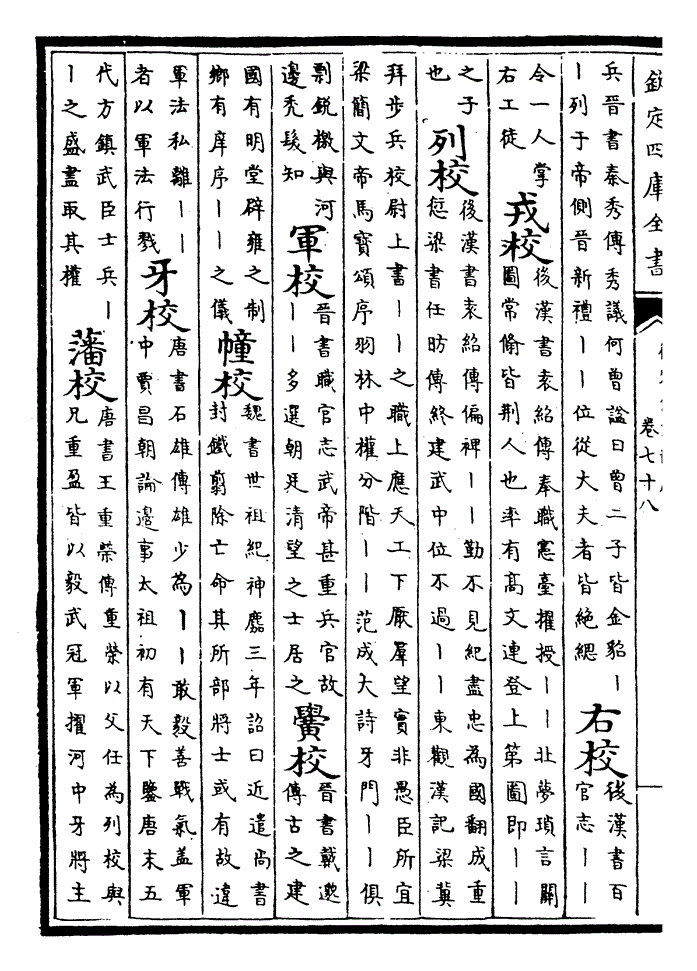 欽定四庫全書
卷七十八
兵晉書秦秀傳秀議何曾諡曰曾二子皆金貂丨
丨列于帝側晉新禮丨丨位從大夫者皆絶緦
右校
後漢書百
官志丨丨
令一人掌
右工徒
戎校
後漢書袁紹傳奉職憲臺擢授丨丨北夢瑣言關
圖常脩皆荆人也率有髙文連登上第圖即丨丨
之子
也
列校
後漢書袁紹傳偏裨丨丨勤不見紀盡忠為國翻成重
愆梁書任昉傳終建武中位不過丨丨東觀漢記梁冀
拜步兵校尉上書丨丨之職上應天工下厭羣望實非愚臣所宜
梁簡文帝馬寶頌序羽林中權分階丨丨范成大詩牙門丨丨俱
剽鋭檄與河
邊秃髮知
軍校
晉書職官志武帝甚重兵官故
丨丨多選朝廷清望之士居之
黌校
晉書戴邈
傳古之建
國有明堂辟雍之制
鄉有庠序丨丨之儀
幢校
魏書世祖紀神䴥三年詔曰近遣尚書
封鐵翦除亡命其所部將士或有故違
軍法私離丨丨
者以軍法行戮
牙校
唐書石雄傳雄少為丨丨敢毅善戰氣盖軍
中賈昌朝論邊事太祖初有天下鑒唐末五
代方鎮武臣士兵丨
丨之盛盡取其權
藩校
唐書王重榮傳重榮以父任為列校與
兄重盈皆以毅武冠軍擢河中牙將主